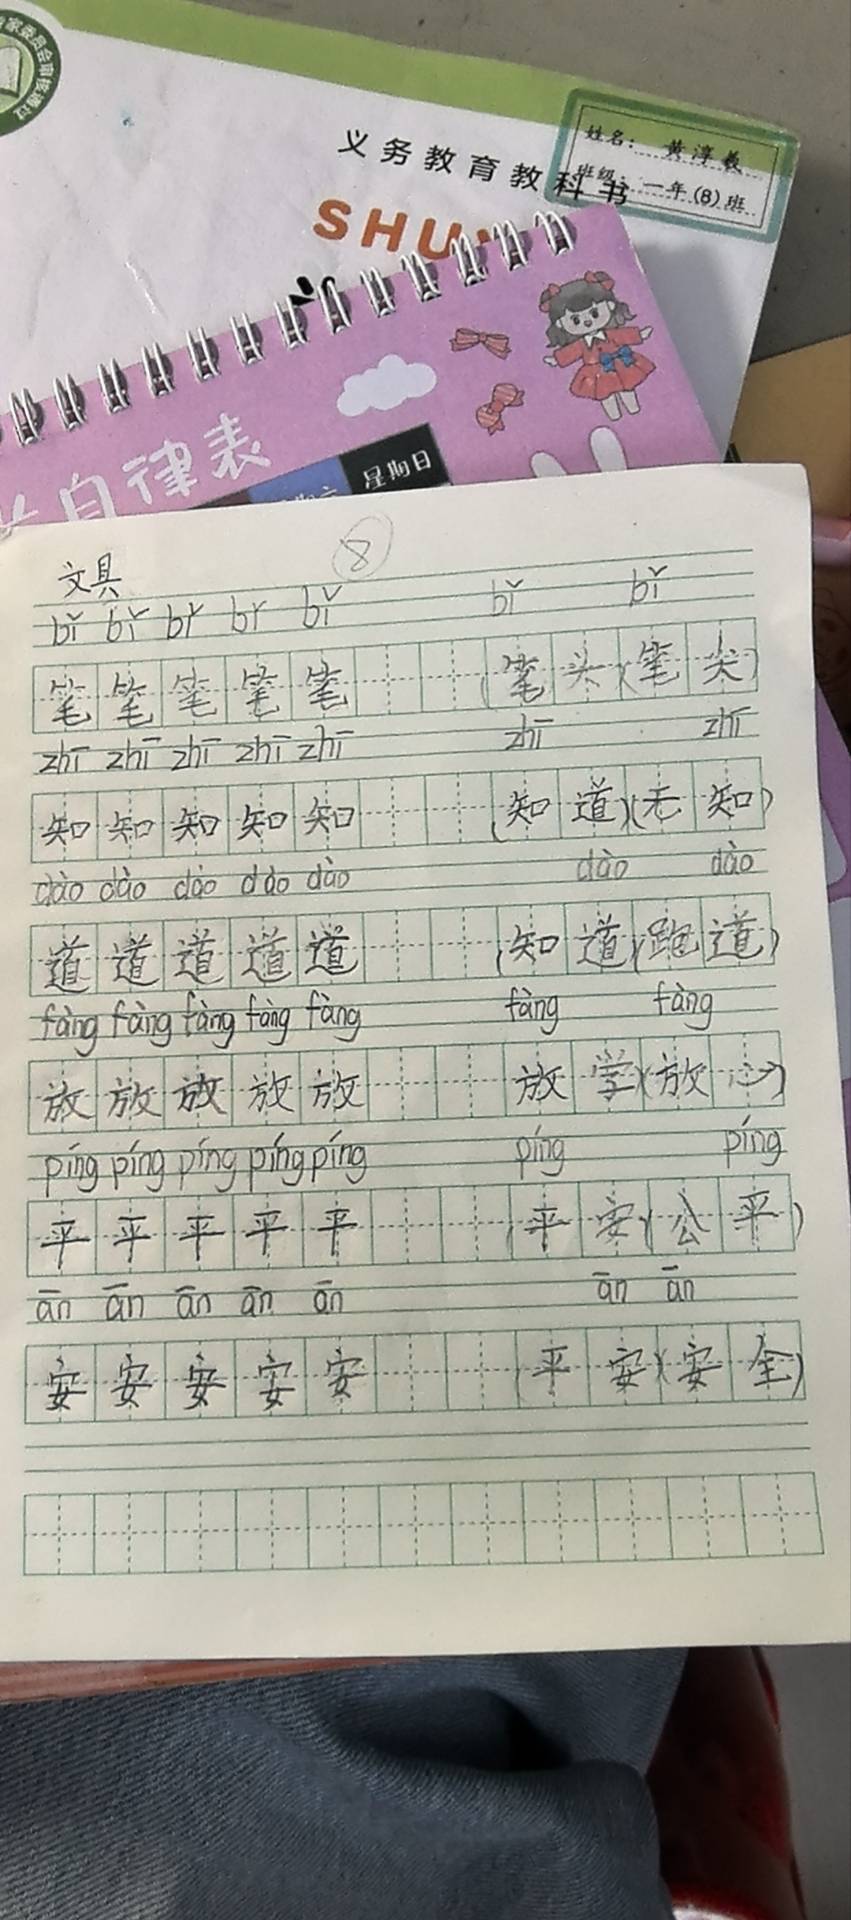 家委员会审核通过
义务教育教科书
姓名: 黄淳羲
班级: 一年(8)班
SHU
自律表
星期日
8
文具
bǐ bǐ bǐ bǐ bǐ bǐ bǐ
笔 笔 笔 笔 笔 (笔 头)(笔 尖)
zhī zhī zhī zhī zhī zhī zhī
知 知 知 知 知 (知 道)(无 知)
dào dào dào dào dào dào dào
道 道 道 道 道 (知 道)(跑 道)
fàng fàng fàng fàng fàng fàng fàng
放 放 放 放 放 放 学)(放 心)
píng píng píng píng píng píng píng
平 平 平 平 平 (平 安)(公 平)
ān ān ān ān ān ān ān
安 安 安 安 安 (平 安)(安 全)